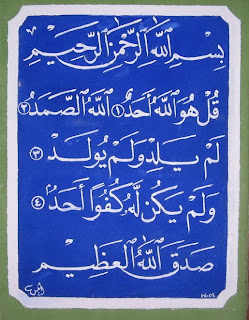 بِسْمِ اللهِ الرَّحْمٰنِ الرَّحِيْمِ
قُلْ هُوَ اللهُ أَحَدٌ ١ اللهُ الصَّمَدُ ٢
لَمْ يَلِدْ وَلَمْ يُولَدْ ٣
وَلَمْ يَكُنْ لَهُ كُفُوًا أَحَدٌ ٤
صَدَقَ اللهُ الْعَظِيْمِ